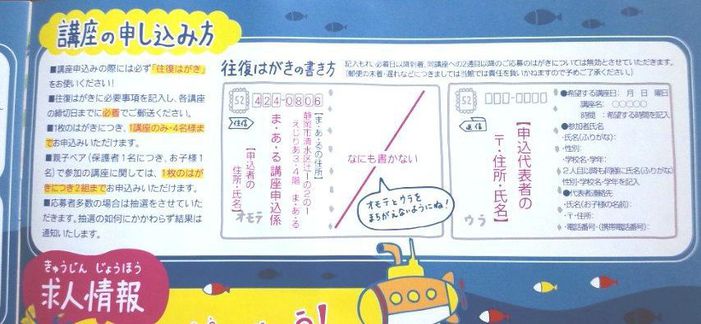 講座の申し込み方
■講座申込みの際には必ず「往復はがき」
をお使いください!
■往復はがきに必要事項を記入し、各講座
の締切日までに必着でご郵送ください。
■1枚のはがきにつき、1講座のみ・4名様ま
でお申込みいただけます。
■親子ペア(保護者1名につき、お子様1
名)で参加の講座に関しては、1枚のはが
きにつき2組までお申込みいただけます。
■応募者多数の場合は抽選をさせていた
だきます。抽選の如何にかかわらず結果は
通知いたします。
往復はがきの書き方
記入もれ、必着日以降到着、同講座への2通目以降のご応募のはがきについては無効とさせていただきます。
(郵便の未着・遅れなどにつきましては当館では責任を負いかねますので予めご了承ください。)
52
424-0806
往信
【ま・あ・るの住所】
静岡市清水区辻1の2の1
えじりあ3・4階 ま・あ・る
ま・あ・る 講座申込係
【申込者の
住所・氏名】
オモテ
なにも書かない
オモテとウラを
まちがえないようにね!
52
返信
【申込代表者の
〒・住所・氏名】
ウラ
●希望する講座日: 月 日 曜日
講座名: ○○○○○
時間 :希望する時間を記入
●参加者氏名
・氏名(ふりがな):
・性別:
・学校名・学年:
2人目以降も同様に氏名(ふりがな)
性別・学校名・学年を記入
●代表者連絡先
・氏名(お子様の名前):
・〒・住所:
・電話番号・(携帯電話番号):
きゅうじん じょうほう
求人情報
う!